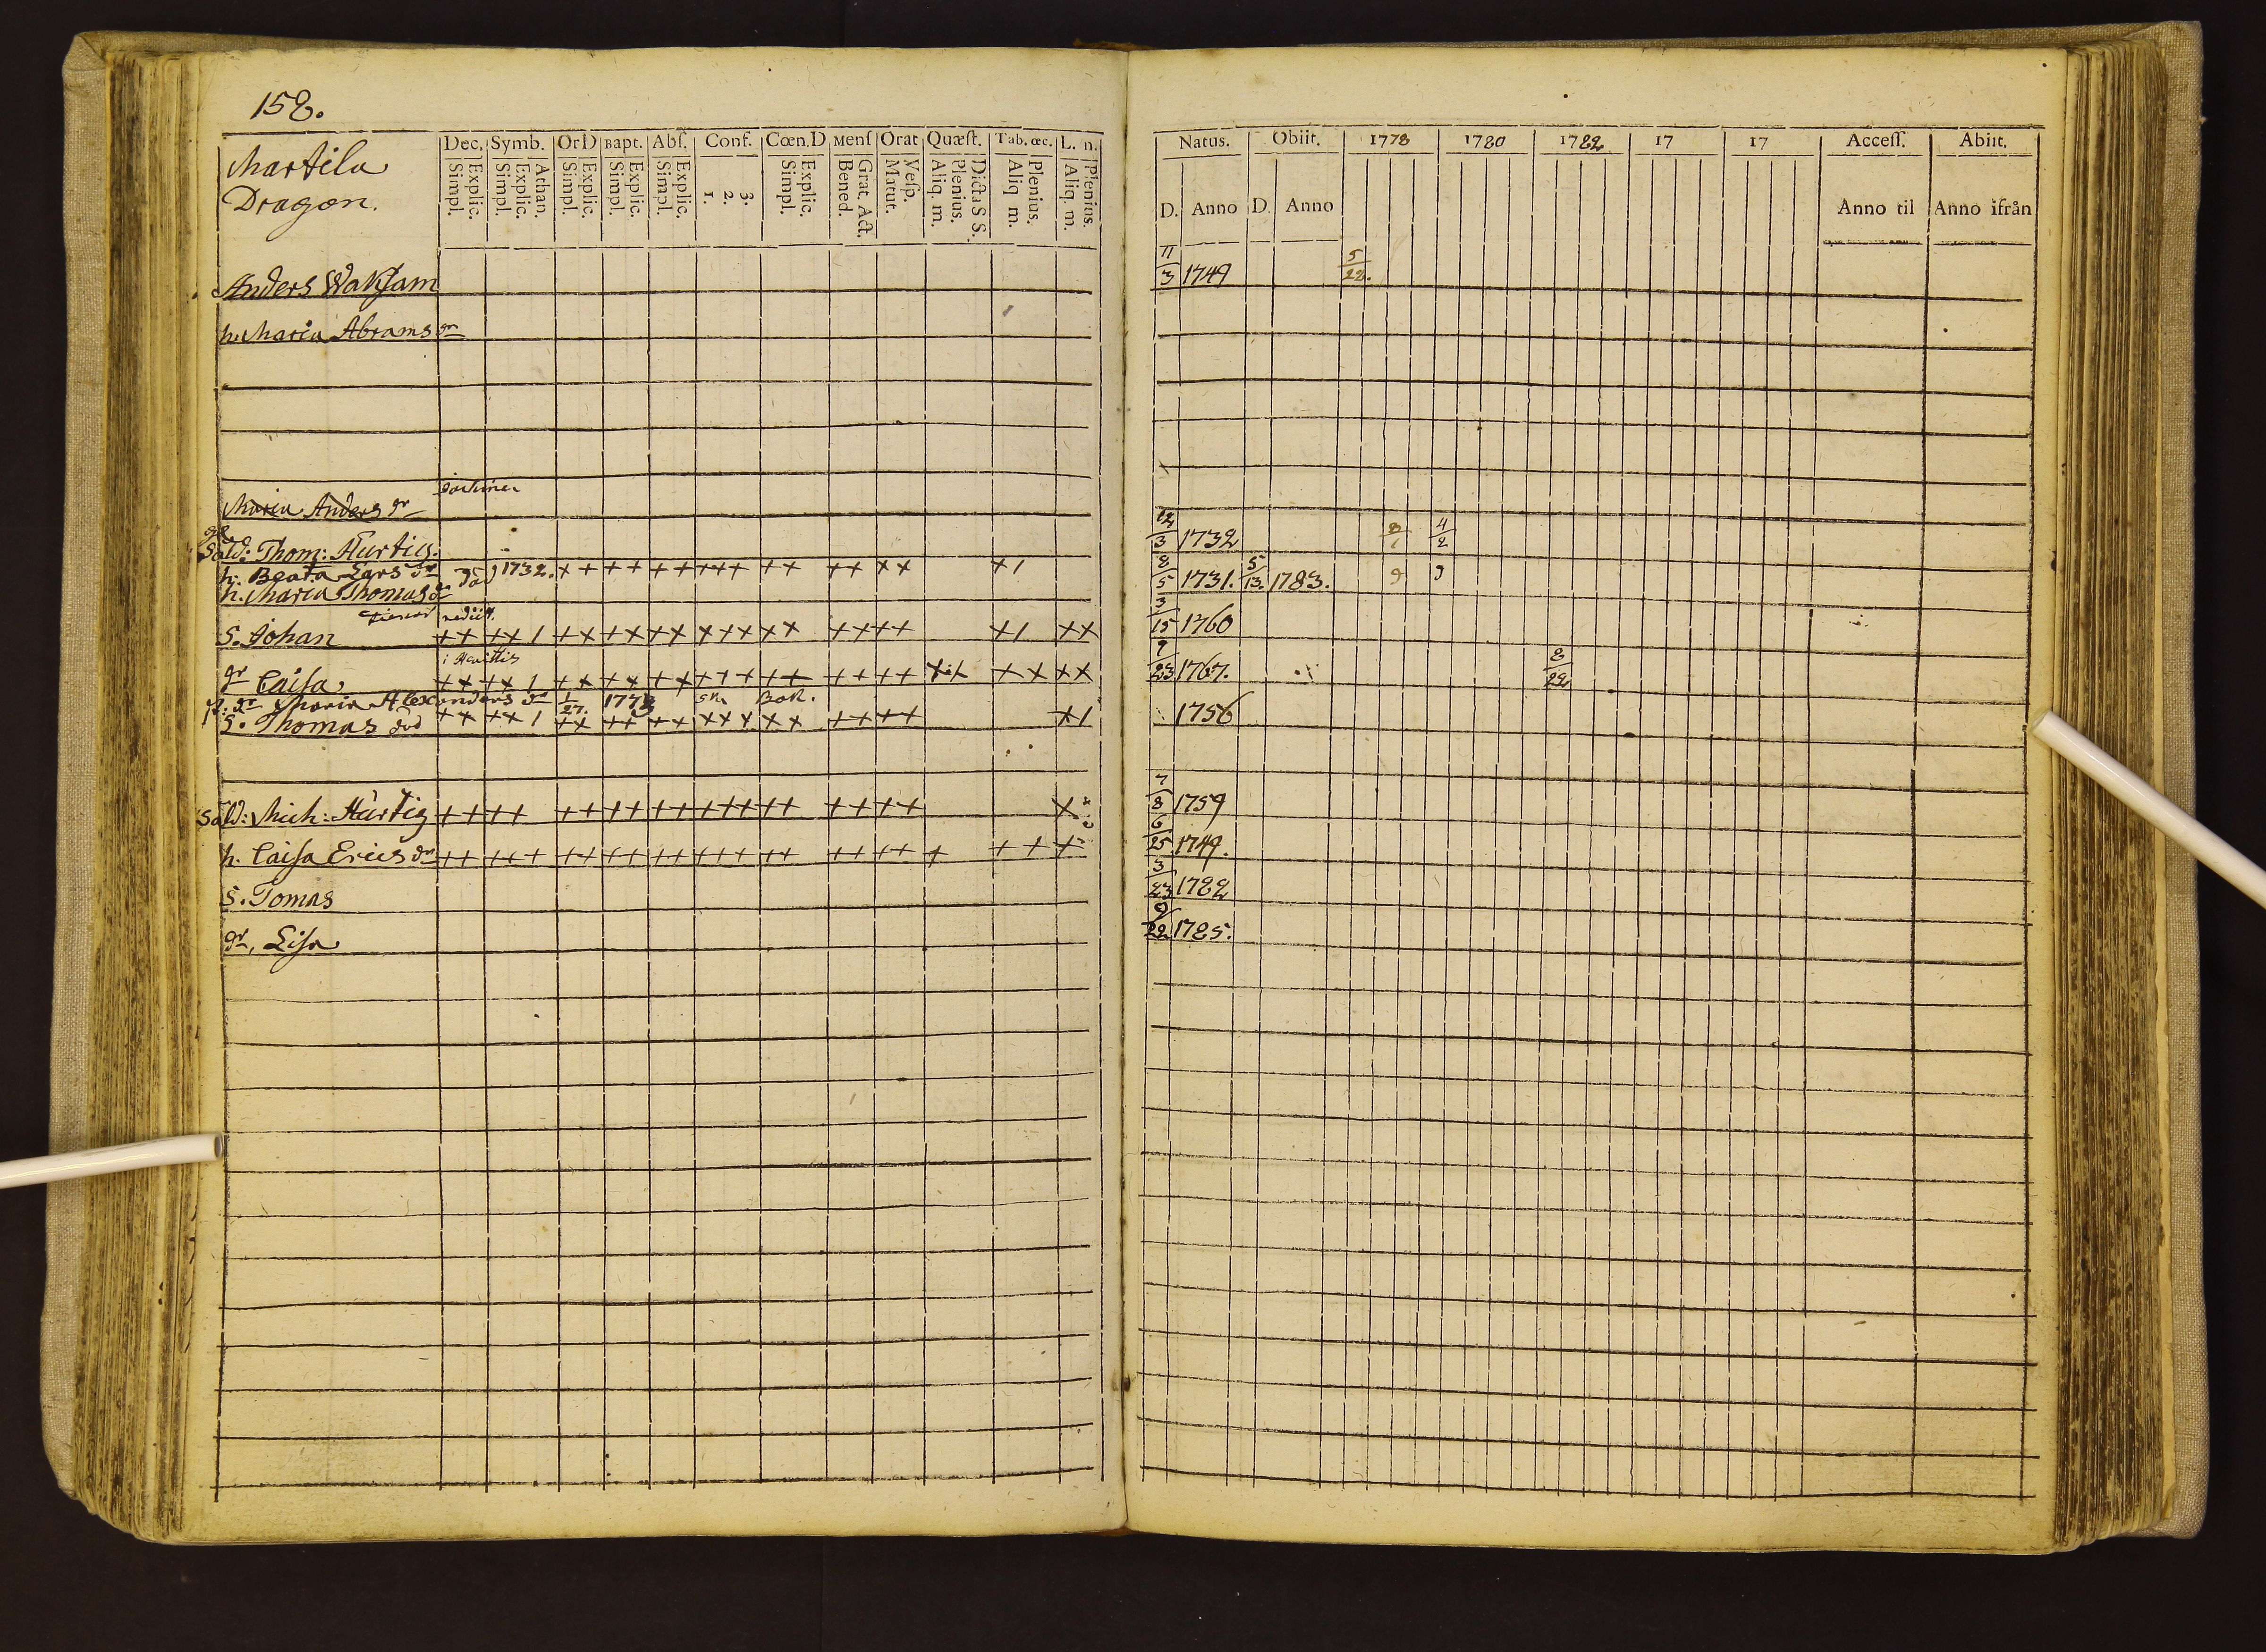 158.
Martila
Dragon.
Dec. Symb. Or D Bapt. Abſ. Conf. Cœn. D Menſ Orat Quæſt. Tab. œc. L. n.
Simpl. Explic. Simpl. Explic. Athan. Simpl. Explic. Simpl. Explic. Simpl. Explic. 1. 2. 3. Simpl. Explic. Bened. Grat. Act. Matut. Veſp. Aliq. m. Plenius. Dicta S S. Aliq m. Plenius. Aliq. m. Plenius.
Natus. Obiit. 1778 1780 1782 17 17 Acceſſ. Abiit.
D. Anno D. Anno Anno til Anno ifrån
Anders Wakſam 11/3 1749 5/22.
h. Maria Abrams dr
Maria Anders dr
Sold: Thom: Hurtig. 12/3 1732 4/2
h. Beata Lars dr död 1732. ++ ++ ++ +++ ++ ++ ++ +/
h. Maria Thomas dr 8/5 1731. 5/13 1783. 9 9
S. Johan ++ ++ / ++ ++ ++ +++ ++ ++ ++ +/ ++ 3/15 1760
dr Caiſa ++ ++ / ++ ++ ++ +++ ++ ++ ++ ++ ++ 9/23 1767. 8/22
Maria Alexanders dr 1/27. 1778
S. Thomas död ++ ++ / ++ ++ ++ +++ ++ ++ ++ +/ 1756
Sold: Mich: Hurtig ++ ++ ++ ++ ++ +++ ++ ++ ++ + 7/8 1759
h. Caiſa Erics dr ++ +++ ++ ++ ++ +++ ++ ++ ++ + ++ + 6/25 1749.
S. Tomas 3/23 1782
dr, Liſa 9/22 1785.